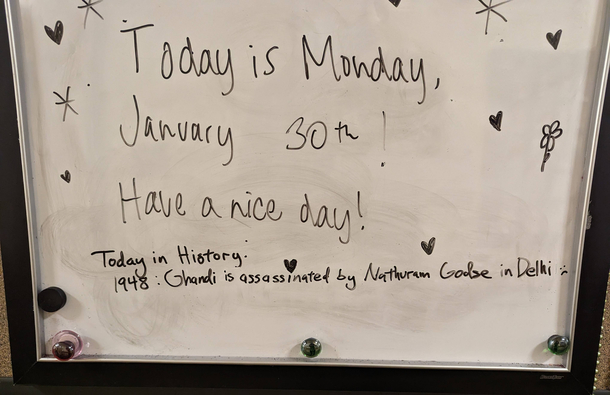 Today is Monday,
January 30th!
Have a nice day!
Today in History:
1948: Ghandi is assassinated by Nathuram Godse in Delhi :